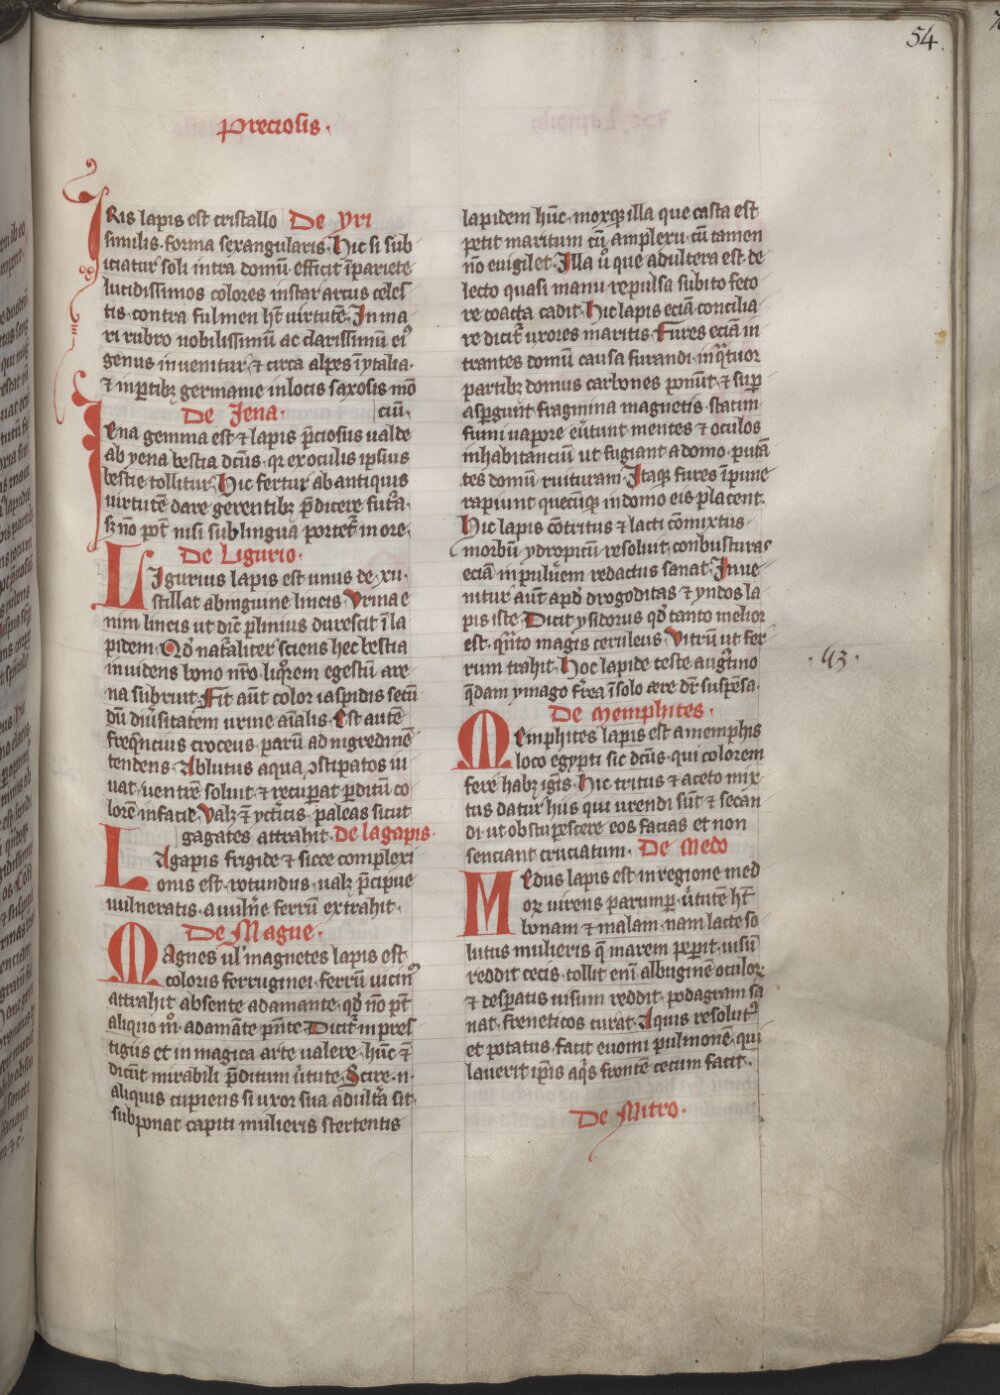 54.
preciosis.
IRis lapis est cristallo De yri
similis. forma sexangularis. Hic si sub
iciatur soli intra domū efficit ī pariete
lucidissimos colores instar arcus celes
tis. contra fulmen hꝫ virtutē. In ma
ri rubro nobilissimū ac clarissimū eiꝰ
genus inuenitur. ⁊ circa alpes ī ytalia.
⁊ in ptibꝫ germanie in locis saxosis mō
De Jena. ciū.
Iena gemma est ⁊ lapis p̄ciosus ualde
ab yena bestia dc̄us. qꝛ ex oculis ipsius
bestie tollitur. Hic fertur ab antiquis
uirtutē dare gerentibꝫ p̄dicere futᷓa.
sꝫ nō pōt nisi sub lingua portet᷑ in ore.
De Ligurio.
LIgurius lapis est unus de .xii.
stillat ab inguine lincis. Vrina e
nim lincis ut dic̄ plinius durescit ī la
pidem. Qd̓ natᷓaliter sciens hec bestia
inuidens bono nr̄o. liqᷓrem egestū are
na subruit. Fit aūt color iaspidis secū
dū diūsitatem urine aīalis. Est autē
freqn̄cius croceus. parū ad nigredinē
tendens. Ablutus aqua ꝯstipatos iu
uat. uentrē soluit. ⁊ recupat perditū co
lorē in facie. Valꝫ ⁊ yct̓icis. paleas sicut
gagates attrahit. De lagapis.
LAgapis frigide ⁊ sicce complexi
onis est. rotundus. ualꝫ p̄cipue
uulneratis. a uuln̄e ferrū extrahit.
De Magne.
MAgnes ul̓ magnetes lapis est
coloris ferruginei. ferrū uicinꝰ
attrahit absente adamante. qd̓ nō pōt
aliquo mō. adamāte pn̄te. Dicit᷑ in pres
tigiis et in magica arte ualere. hūc ⁊
dicūt mirabili p̄ditum ūtute. Scire .n.
aliquis cupiens si uxor sua adultᷓa sit.
subponat capiti mulieris stertentis
lapidem hūc. moxqꝫ illa que casta est
petit maritum cū amplexu. cū tamen
nō euigilet. Illa ū que adultera est. de
lecto quasi manu repulsa subito feto
re coacta cadit. Hic lapis eciā concilia
re dicit᷑ uxores maritis. Fures eciā in
trantes domū causa furandi. in qᷓtuor
partibꝫ domus carbones ponūt. ⁊ sup
aspergunt fragmina magnetis. statim
fumi uapore eūtunt mentes ⁊ oculos
inhabitanciū ut fugiant a domo. putā
tes domū ruituram. Itaqꝫ fures īpune
rapiunt quecūqꝫ in domo eis placent.
Hic lapis cōtritus ⁊ lacti cōmixtus
morbū ydropicū resoluit. conbusturas
eciā in puluēm redactus sanat. Inue
nitur aūt apd̓ drogoditas ⁊ yndos la
pis iste. Dicit ysidorus qd̓ tanto melior
est. qn̄to magis ceruleus. Vitrū ut fer
rum trahit. Hoc lapide teste augᷤtino
qᷓdam ymago fr̄ea ī solo aere dr̄ suspēsa.
.43.
De Memphites.
MEmphites lapis est a memphis
loco egypti sic dc̄us. qui colorem
fere habꝫ ignīs. Hic tritus ⁊ aceto mix
tus datur hiis qui urendi sūt ⁊ secan
di. ut obstupescere eos facias et non
senciant cruciatum. De Medo
MEdus lapis est in regione med
oꝝ. uirens parumper. ūtutē hꝫ
bonam ⁊ malam. nam lacte so
lutus mulieris q̄ marem peperit. uisū
reddit cecis. tollit enī albuginē oculoꝝ
⁊ despatis uisum reddit. podagram sa
nat. freneticos curat. Aquis resolutꝰ
et potatus. facit euomi pulmonē. qui
lauerit ipīs aqͥs frontē cecum facit.
De Mitro.